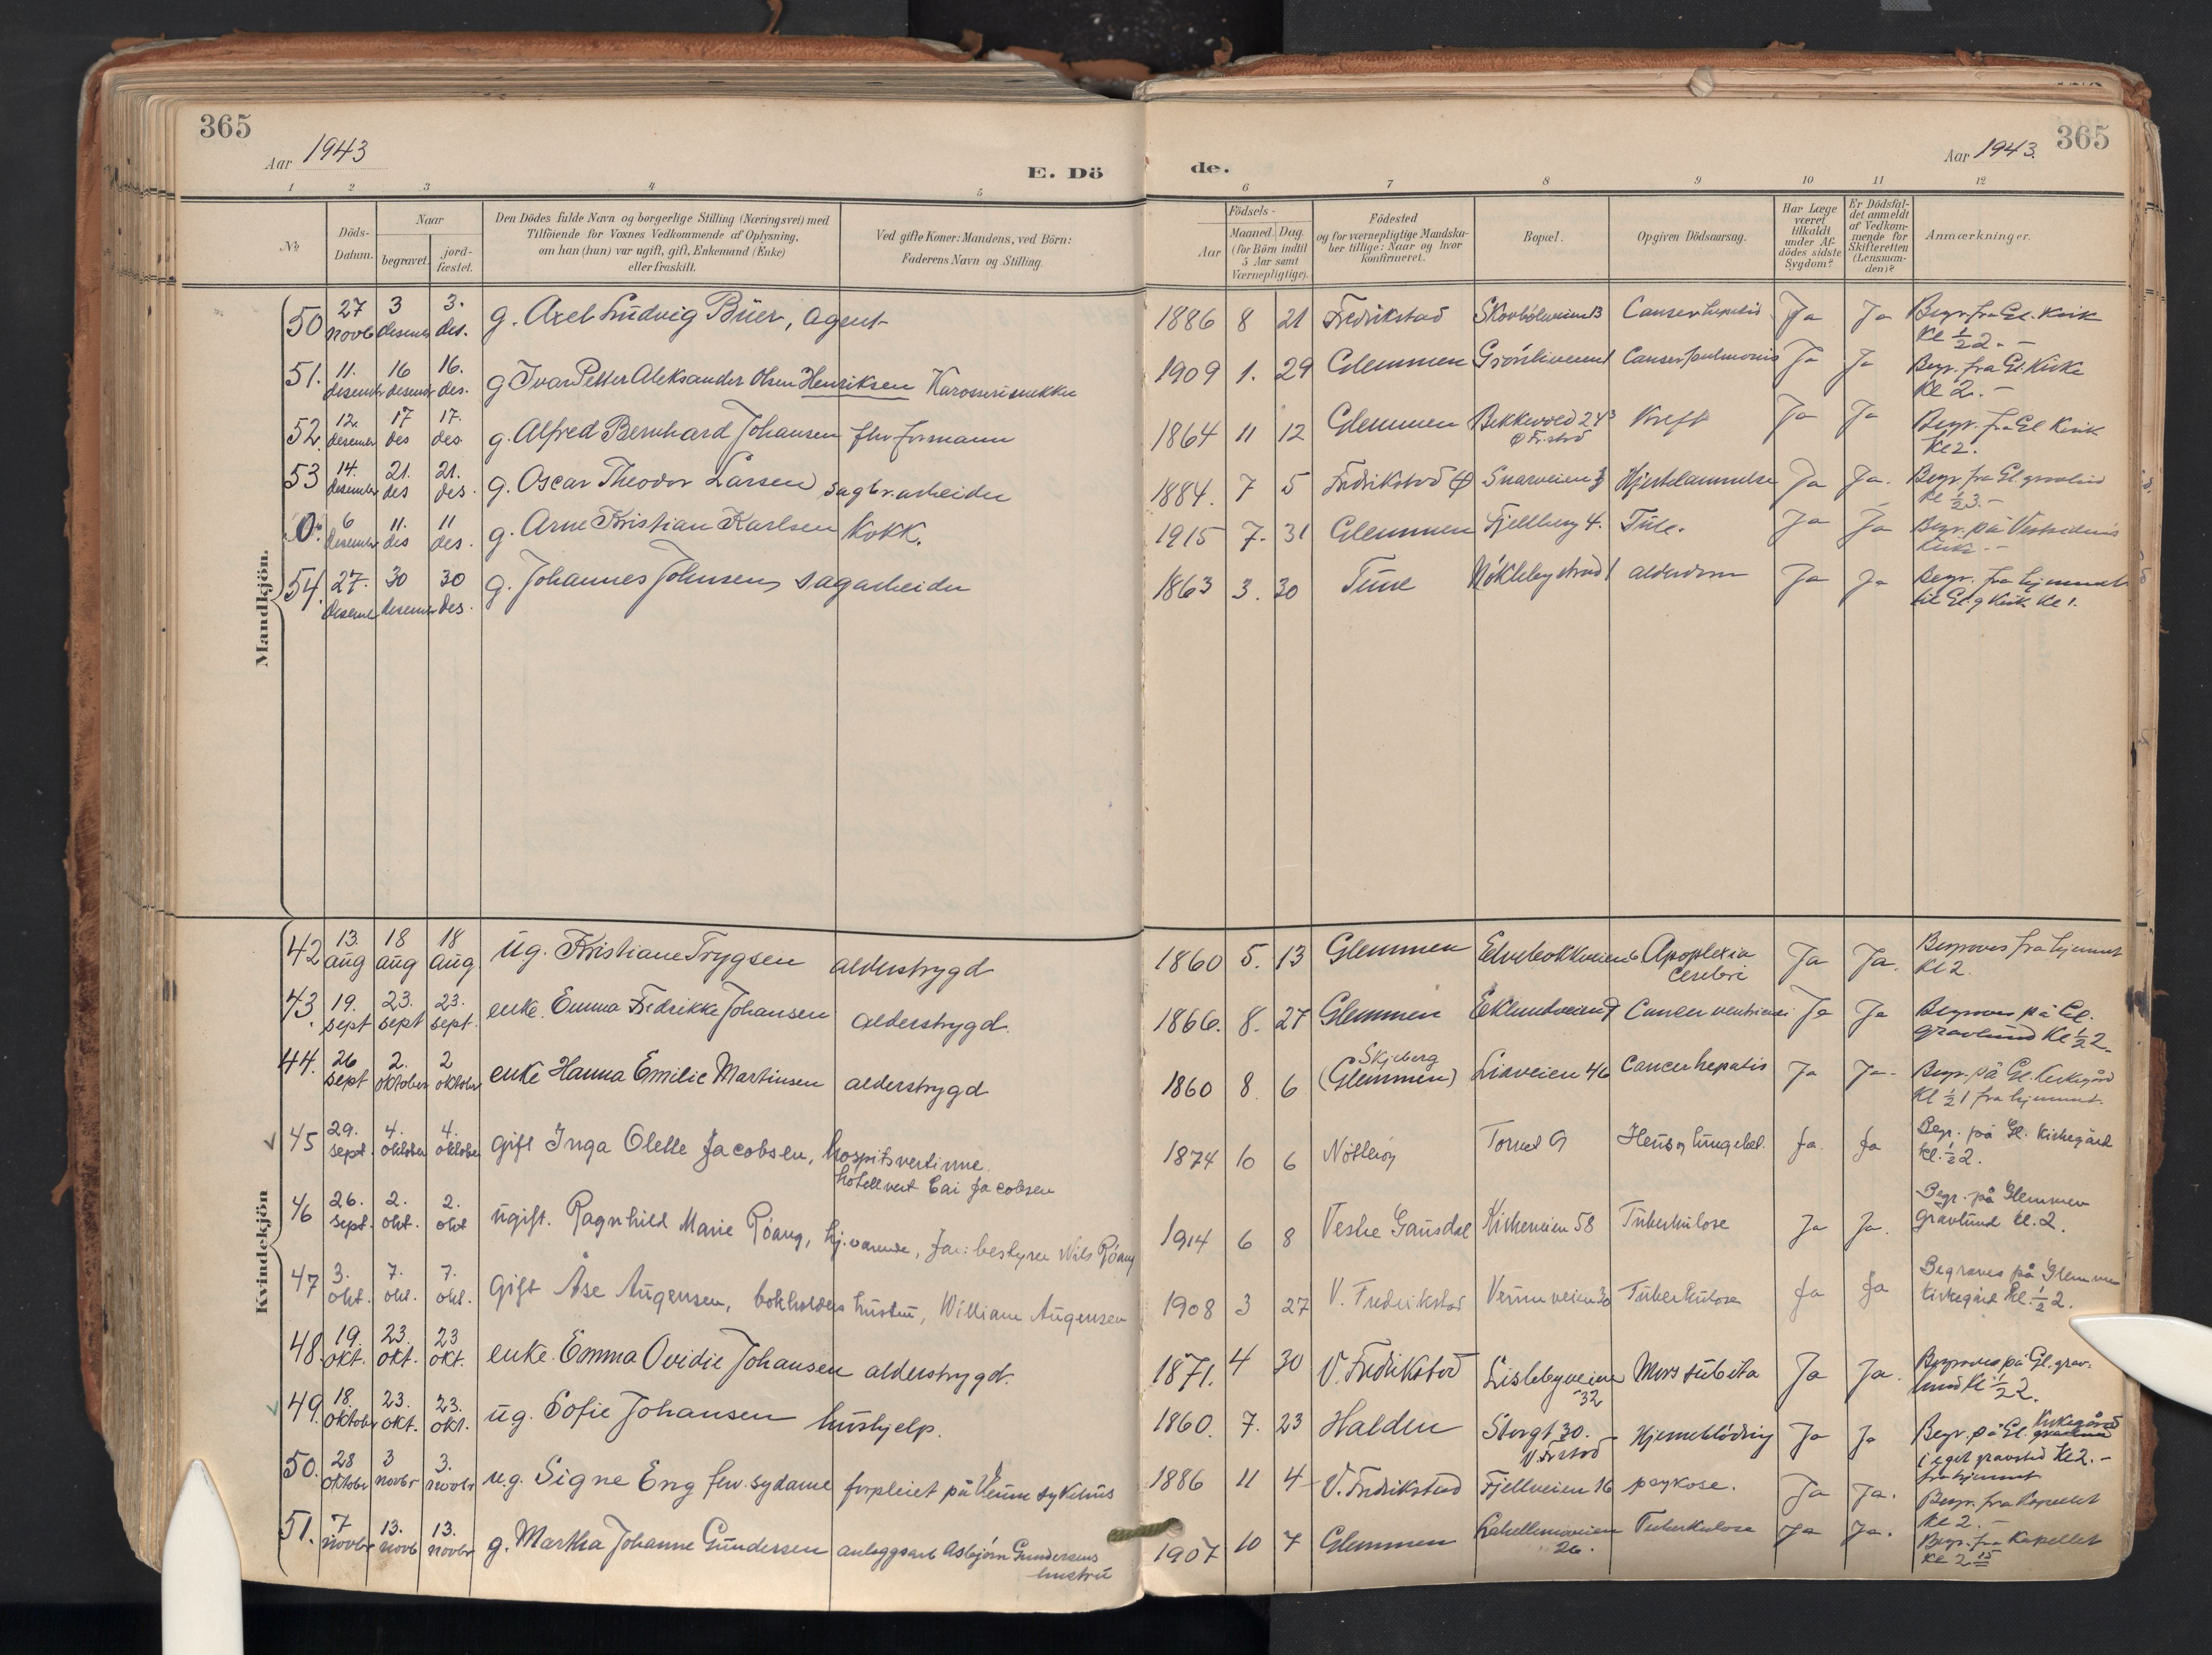 365
Aar 1943
E. Dö
de.
Aar 1943.
365
1 2 3 4 5 6 7 8 9 10 11 12
№
Döds-
Datum.
Naar
begravet.
jord-
fæstet.
Den Dödes fulde Navn og borgerlige Stilling (Næringsvei) med
Tilföiende for Voxnes Vedkommende af Oplysning,
om han (hun) var ugift, gift, Enkemand (Enke)
eller fraskilt.
Ved gifte Koner: Mandens, ved Börn:
Faderens Navn og Stilling.
Födsels-
Aar
Maaned. Dag.
(for Börn indtil
5 Aar samt
Værnepligtige).
Födested
og for værnepligtige Mandska-
ber tillige: Naar og hvor
konfirmeret.
Bopæl.
Opgiven Dödsaarsag.
Har Læge
været
tilkaldt
under Af-
dödes sidste
Sygdom?
Er Dödsfal-
det anmeldt
af Vedkom-
mende for
Skifteretten
(Lensman-
den)?
Anmærkninger.
Mandkjön.
50 27 novb 3 desembr 3. des. g. Axel Ludvig Büer, agent 1886 8 21 Fredrikstad 13 Cancer hepatis Ja Ja Begr. fra Gl. Kirk
Kl ½ 2. –
51. 11. desembr 16 desembr 16. des. g Ivar Petter Aleksander Olsen Henriksen Karosserisnekker 1909 1. 29 Glemmen Grönliveien 1 Cancer pulmonis Ja Ja Begr. fra Gl. Kirke
Kl 2. –
52. 12. desember 17 des 17. des. g. Alfred Bernhard Johansen fhv formann 1864 11 12 Glemmen Bekkevold 24³ Kreft Ja Ja Begr. fra Gl Kirk
Kl 2.
53 14. desember 21. des 21. des. g. Oscar Theodor Larsen sagbr. arbeider 1884. 7 5 Fredrikstad Snarveien 3 Hjertelammelse Ja Ja. Begr fra Gl. gravlund
Kl ½ 3. –
0. 6 desember 11. des 11 des. g. Arne Kristian Karlsen Kokk. 1915 7. 31 Glemmen Fjellberg 4. Tub. Ja Ja Begr. på Vestsidens
Kirke. –
54. 27. desembr 30 desember 30 des. g. Johannes Johnsen, sagarbeider 1863 3. 30 Tune Nökleby strand 1 alderdom Ja Ja Begr. fra hjemmet
til Gl. g Kirk. Kl 1.
Kvindekjön
42 13. aug 18 aug 18 aug. ug. Kristiane Trygsen alderstrygd 1860 5. 13 Glemmen Apoplexia
cerebri Ja Ja. Begraves fra hjemmet
Kl 2.
43. 19. sept 23. sept 23. sept. enke. Emma Fredrikke Johansen alderstrygd. 1866. 8. 27 Glemmen Eklundveien 7 Cancer ventriculi Ja Ja Begraves på Gl.
gravlund Kl ½ 2.
44. 26 sept 2. oktober 2 oktober enke Hanna Emilie Martinsen alderstrygd 1860 8. 6 Skjeberg
(Glemmen) Liaveien 46 Cancer hepatis Ja Ja. Begr. på Gl. Kirkegård
Kl ½ 1 fra hjemmet.
45 29. sept. 4. oktober 4. oktober gift Inga Olette Jacobsen, hospitsvertinne.
hotellvert Cai Jacobsen 1874 10 6 Nötteröy Torvet 9 Ja. Ja Begr. på Gl. Kirkegård
kl. ½ 2.
46 26. sept. 2. okt. 2. okt ugift. Ragnhild Marie Röang, hj. værende, Far: bestyrer Nils Röang 1914 6 8 Vestre Gausdal Kirkeveien 58 Tuberkulose Ja Ja. Begr. på Glemmen
gravlund kl. 2.
47 3. okt. 7. okt. 7. okt. Gift Åse Augensen, bokholders hustru, William Augensen 1908 3 27 V. Fredrikstad Veumveien 30 Tuberkulose Ja Ja Begraves på Glemmen
kirkegård kl. ½ 2.
48. 19. okt. 23. okt. 23 okt. enke. Emma Ovidie Johansen alderstrygd. 1871. 4 30 V. Fredrikstad Lislebyveien
32 Mors subita Ja Ja. Begraves på Gl. grav-
lund Kl ½ 2.
49. 18. oktober 23. okt. 23. okt. ug. Sofie Johansen hushjelp. 1860. 7. 23 Halden Storgt 30.
V. Fr.stad Hjerneblödning Ja Ja Begr. på Gl. Kirkegård
i eget gravsted Kl 2. –
fra hjemmet
50. 28 oktober 3 novbr 3. novbr u.g. Signe Eng fhv. sydame forpleiet på Veum sykehus 1886 11 4 V. Fredrikstad Fjellveien 16 psykose. Ja Ja. Begr. fra Kapellet
Kl 2. –
51. 7 novbr 13. novb 13. novbr g. Martha Johanne Gundersen anleggsarb Asbjörn Gundersens
hustru 1907 10 7 Glemmen Lahelleveien
26. Tuberkulose Ja Ja. Begr. fra Kapellet
Kl 2 15